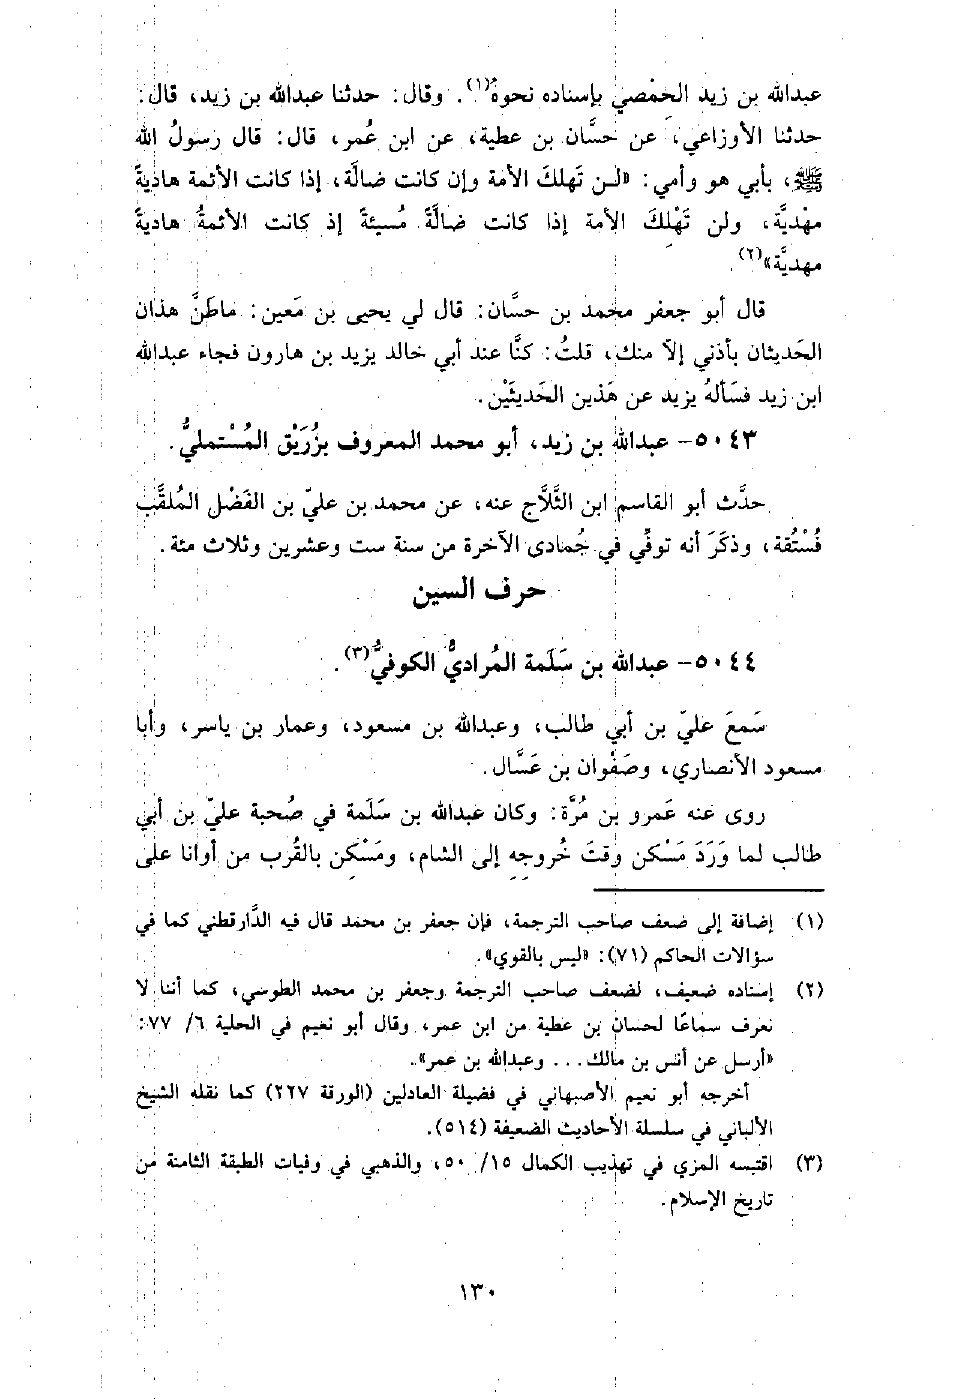 عبدالله بن زيد الحمْصي بإسناده نحوهُ(١). وقال: حدثنا عبدالله بن زيد، قال:
حدثنا الأوزاعي، عن حسَّان بن عطية، عن ابن عُمر، قال: قال رسولُ الله
ﷺ، بأبي هو وأمي: «لـن تَهلكَ الأمة وإن كانت ضالَّة، إذا كانت الأئمة هاديةً
مهْديَّة، ولن تَهْلِكَ الأمة إذا كانت ضالَّةً مُسيئةً إذ كانت الأئمةُ هاديةً
مهديَّة»(٢).
قال أبو جعفر محمد بن حسَّان: قال لي يحيى بن مَعين: ماطنَّ هذان
الحَديثان بأذني إلاّ منك، قلتُ: كنَّا عند أبي خالد يزيد بن هارون فجاء عبدالله
ابن زيد فسَألهُ يزيد عن هَذين الحَديثَيْن.
٥٠٤٣- عبدالله بن زيد، أبو محمد المعروف بزُرَيْق المُسْتمليُّ.
حدَّث أبو القاسم ابن الثَّلَّاج عنه، عن محمد بن عليّ بن الفَضْل المُلقَّب
فُسْتُقة، وذكَرَ أنه توفِّي في جُمادى الآخرة من سنة ست وعشرين وثلاث مئة.
حرف السين
٥٠٤٤- عبدالله بن سَلَمة المُراديُّ الكوفيُّ(٣).
سَمعَ عليّ بن أبي طالب، وعبدالله بن مسعود، وعمار بن ياسر، وأبا
مسعود الأنصاري، وصَفْوان بن عَسَّال.
روى عنه عَمرو بن مُرَّة: وكان عبدالله بن سَلَمة في صُحبة عليّ بن أبي
طالب لما وَرَدَ مَسْكِن وقتَ خُروجِهِ إلى الشام، ومَسْكِن بالقُرب من أوانا على
(١) إضافة إلى ضعف صاحب الترجمة، فإن جعفر بن محمد قال فيه الدَّارقطني كما في
سؤالات الحاكم (٧١): «ليس بالقوي».
(٢) إسناده ضعيف، لضعف صاحب الترجمة وجعفر بن محمد الطوسي، كما أننا لا
نعرف سماعًا لحسان بن عطية من ابن عمر، وقال أبو نعيم في الحلية ٦/ ٧٧:
«أرسل عن أنس بن مالك... وعبدالله بن عمر».
أخرجه أبو نعيم الأصبهاني في فضيلة العادلين (الورقة ٢٢٧) كما نقله الشيخ
الألباني في سلسلة الأحاديث الضعيفة (٥١٤).
(٣) اقتبسه المزي في تهذيب الكمال ١٥/ ٥٠، والذهبي في وفيات الطبقة الثامنة من
تاريخ الإسلام.
١٣٠